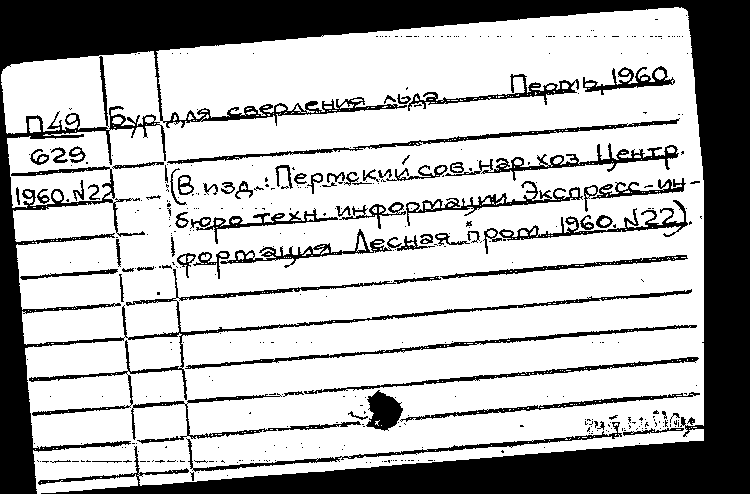 П49 Бур для сверления льда. Пермь, 1960
629.
1960.N22 (В изд.: Пермский сов. нар. хоз Центр.
бюро техн. информации. Экспресс-ин-
формация. Лесная пром. 1960. N22)